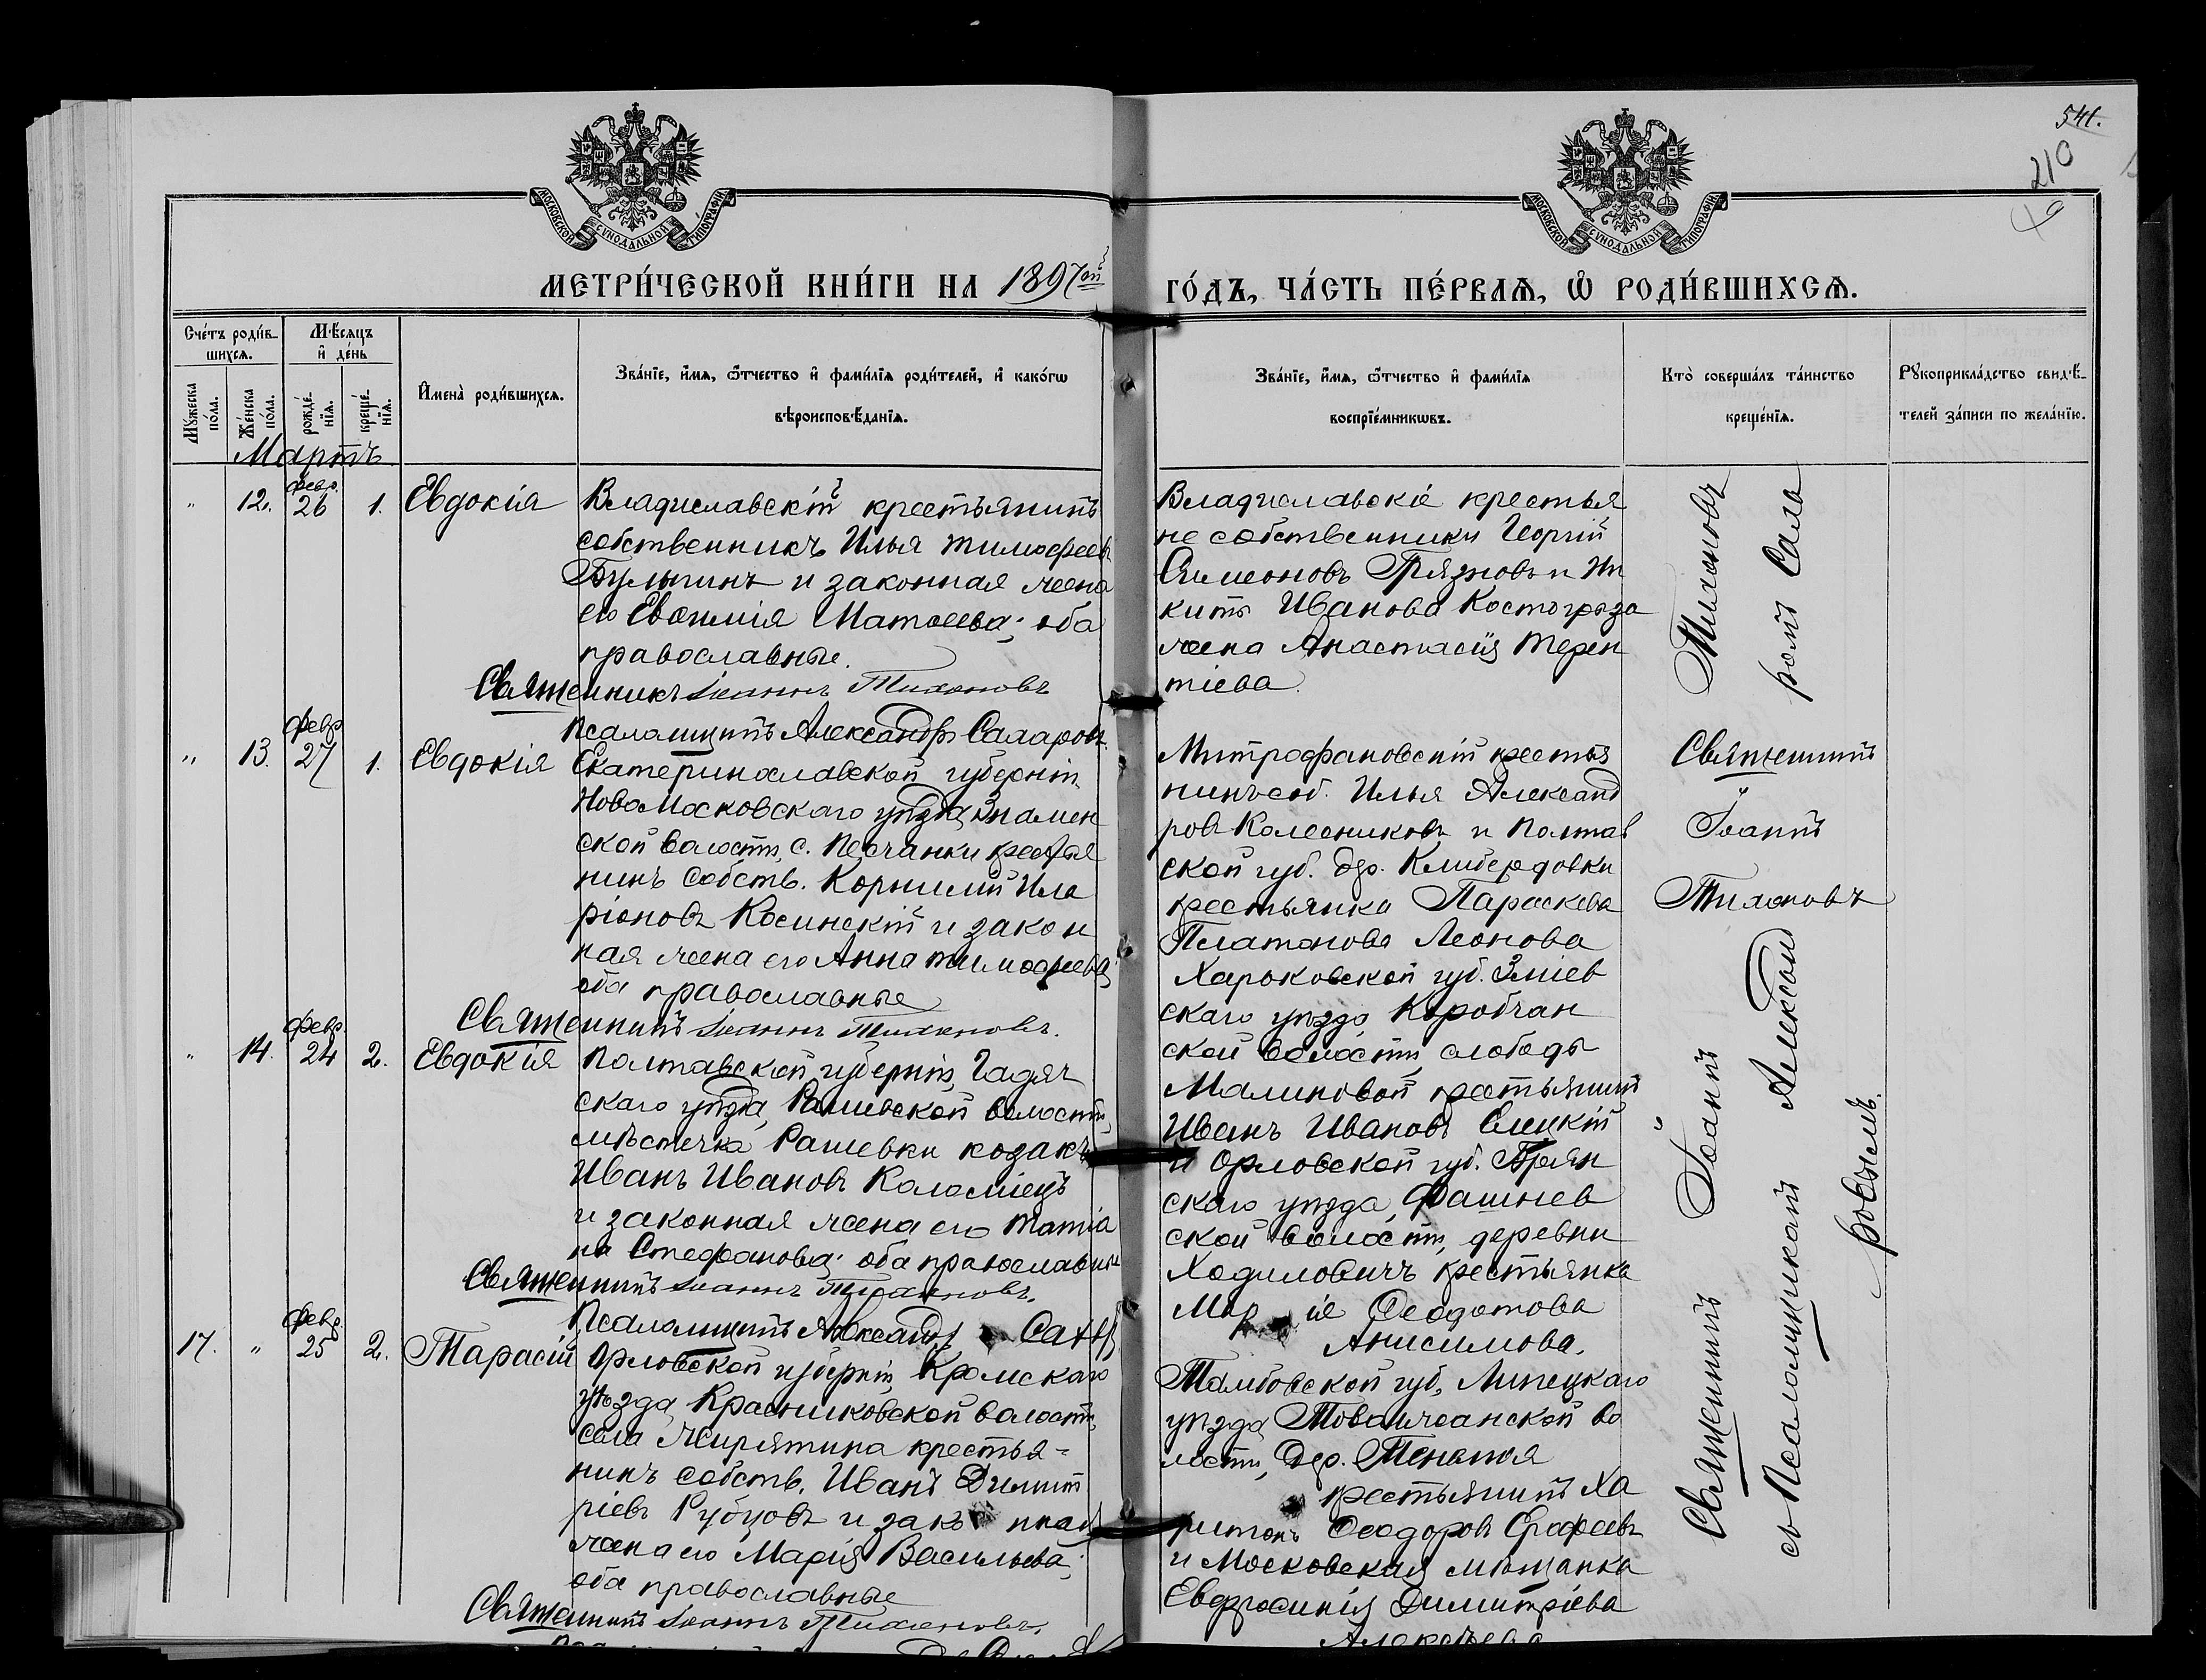 541.
210
МОСКОВСКОЙ СѴНОДАЛЬНОЙ ТИПОГРАФІИ
МОСКОВСКОЙ СѴНОДАЛЬНОЙ ТИПОГРАФІИ
МЕТРИ́ЧЕСКОЙ КНИ́ГИ НА 1897ой
ГО́ДЪ, ЧА́СТЬ ПЕ́РВАѦ, Ѽ РОДИ́ВШИХСѦ.
Сче́тъ роди́в-
шихсѧ.
Мꙋ́жеска по́ла.
Же́нска по́ла.
Мѣ́сѧцъ
и҆ де́нь
рожде́-
нїѧ.
креще́-
нїѧ.
И҆мена̀ роди́вшихсѧ.
Зва́нїе, и҆́мѧ, ѻ҆́тчество и҆ фами́лїѧ роди́телей, и҆ како́гѡ
вѣроисповѣ́данїѧ.
Зва́нїе, и҆́мѧ, ѻ҆́тчество и҆ фами́лїѧ
воспрїе́мникѡвъ.
Кто̀ соверша́лъ та́инство
креще́нїѧ.
Рꙋкоприкла́дство свидѣ́-
телей за́писи по жела́нїю.
Мартъ
" 12. февр. 26 1. Евдокія
Владиславскій крестьянинъ
собственникъ Илья Тимофеевъ
Булыгинъ и законная жена
его Евѳимія Матѳеева; оба
православные.
Священникъ Іоаннъ Тихоновъ
Псаломщикъ Александръ Сахаровъ.
Владиславскіе крестья
не собственники Георгій
Симеоновъ Грязновъ и Ни
киты Иванова Костогрыза
жена Анастасія Терен
тіева.
" 13. февр 27 1. Евдокія
Екатеринославской губерніи,
Новомосковскаго уѣзда, Знамен
ской волости, с. Песчанки крестья
нинъ собств. Корнилій Ила
ріоновъ Косинскій и закон
ная жена его Анна Тимофеева;
оба православные
Священникъ Іоаннъ Тихоновъ.
Митрофановскій крестья
нинъ соб. Илья Александ
ровъ Колесниковъ и Полтав
ской губ. дер. Климбердовки
крестьянка Параскева
Платонова Леонова
Священникъ
Іоаннъ
Тихоновъ
" 14. февр. 24 2. Евдокія
Полтавской губерніи, Гадяч
скаго уѣзда, Рашевской волости,
мѣстечка Рашевки козакъ
Иванъ Ивановъ Коломіецъ
и законная жена его Татіа
на Стефанова; оба православные
Священникъ Іоаннъ Тихоновъ.
Псаломщикъ Александръ Сахар
Харьковской губ. Зміев
скаго уѣзда, Коробчан
ской волости, слободы
Малиновой крестьянинъ
Иванъ Ивановъ Слицкій
и Орловской губ. Брян
скаго уѣзда, Фашнев
ской волости, деревни
Ходиловичъ крестьянка
Марія Ѳеодотова
Анисимова.
17. " февр. 25 2. Тарасій
Орловской губерніи, Кромскаго
уѣзда, Красниковской волости,
села Жирятина крестья-
нинъ собств. Иванъ Димит
ріевъ Рубцовъ и законная
жена его Марія Васильева;
оба православные
Священникъ Іоаннъ Тихоновъ.
Тамбовской губ., Липецкаго
уѣзда во
лости, дер.
крестьянинъ Ха
ритонъ Ѳеодоровъ Ерофеевъ
и Московская мѣщанка
Евфросинія Димитріева
Алексѣева
Священникъ Іоаннъ Тихоновъ
съ Псаломщикомъ Александромъ Саха
ровымъ.